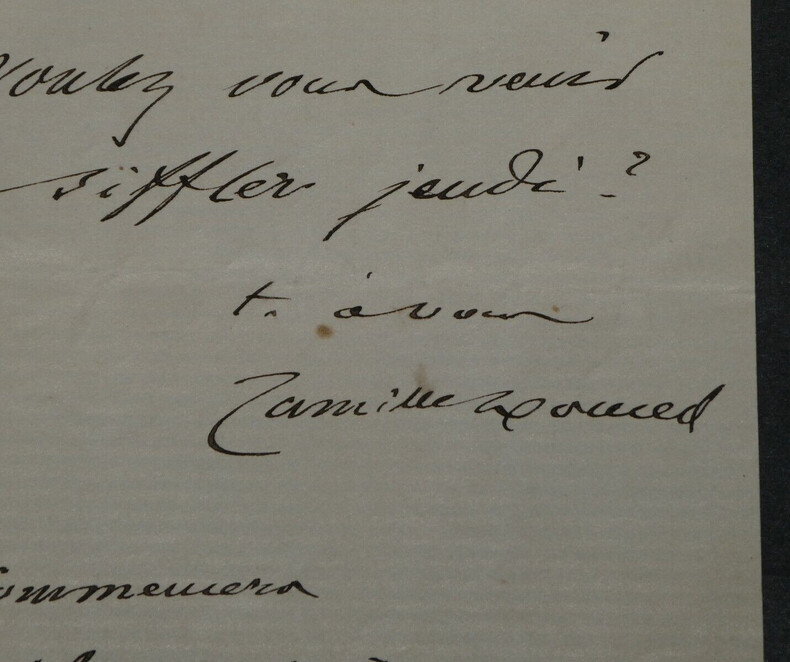 Voulez vous venir
siffler jeudi ?
t. à vous
Camille Doucet
commencera